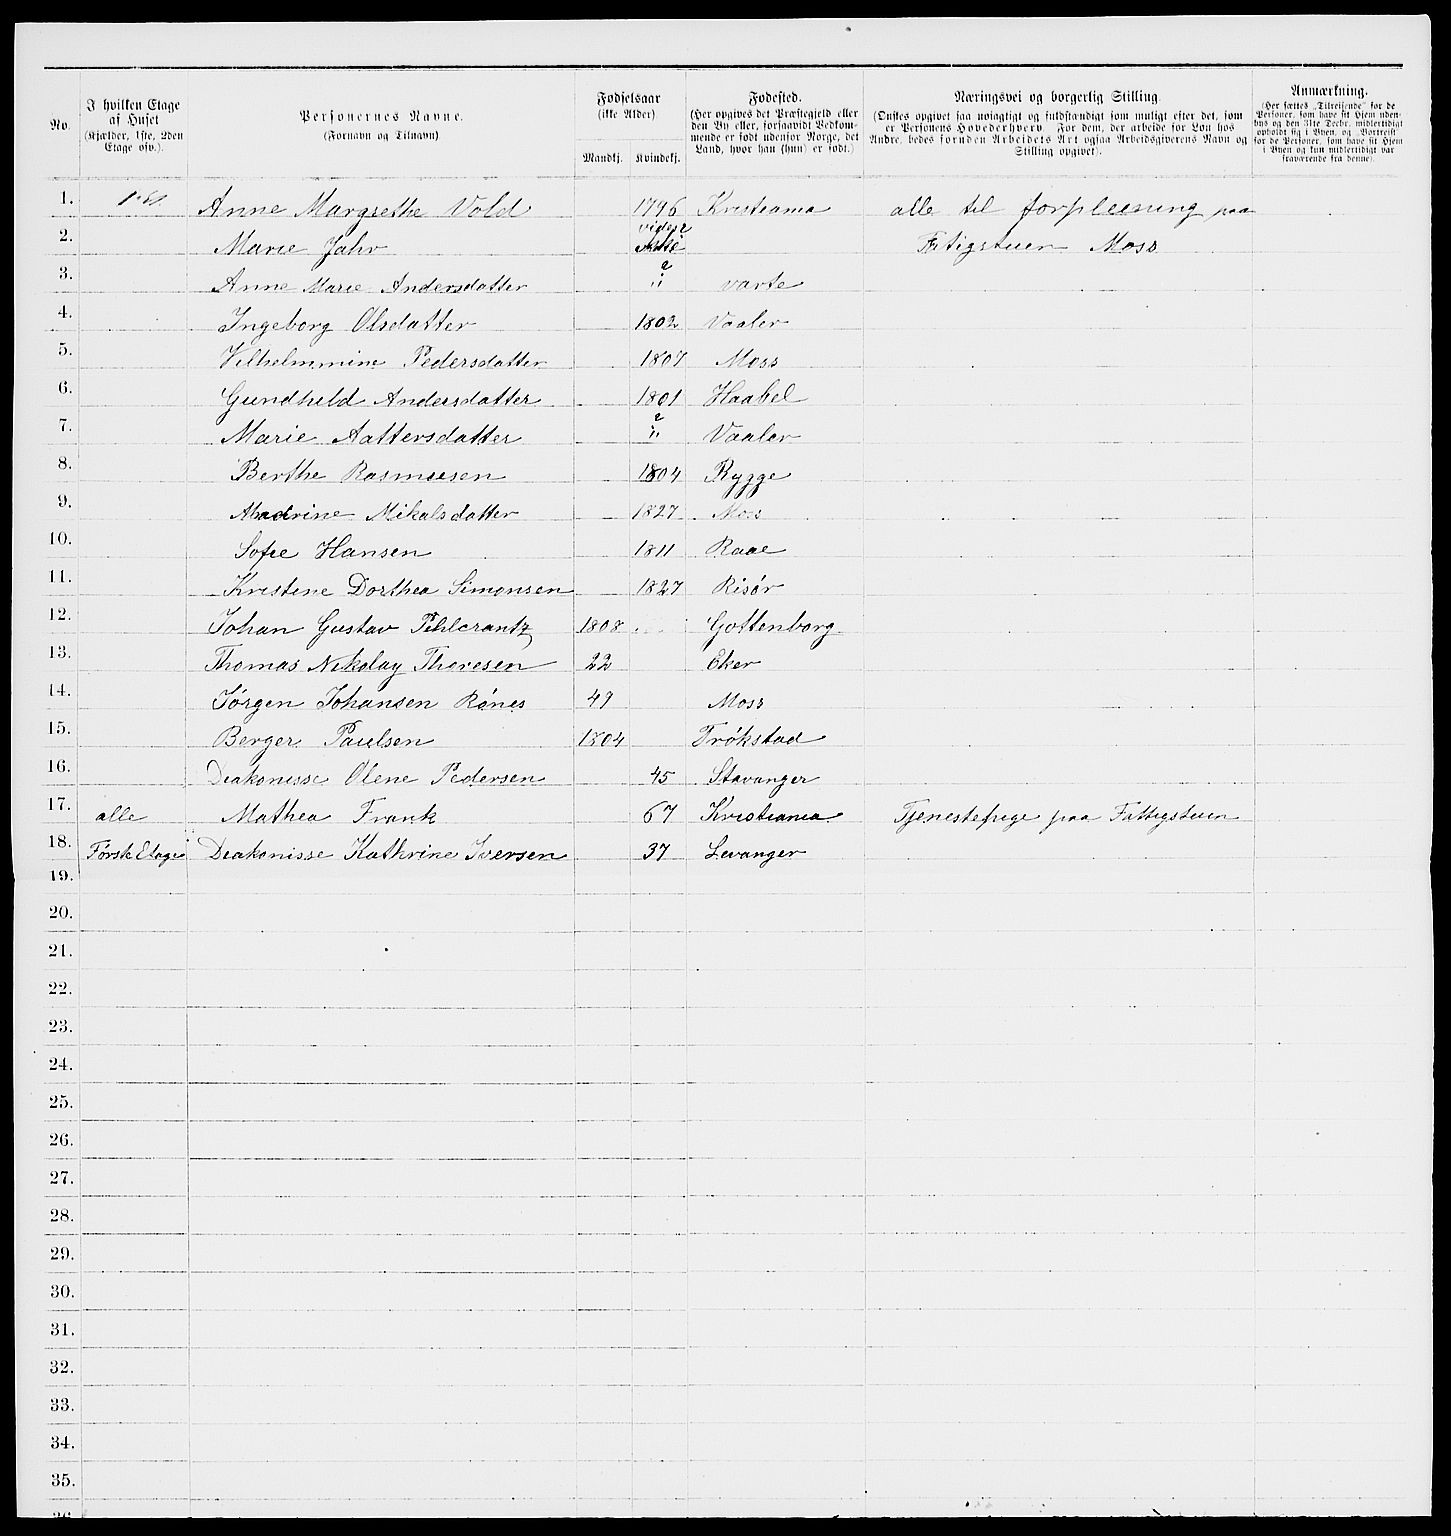 No. | I hvilken Etage af Huset (Kjælder, 1ste, 2den Etage osv.). | Personernes Navne. (Fornavn og Tilnavn). | Fødselsaar (ikke Alder) Mandkj. | Kvindekj. | Fødested. (Her opgives det Præstegjeld eller den By eller, forsaavidt Vedkommende er født udenfor Norge, det Land, hvor han (hun) er født.) | Næringsvei og borgerlig Stilling. (Ønskes opgivet saa nøiagtigt og fuldstændigt som muligt efter det, som er Personens Hovederhverv. For dem, der arbeide for Løn hos Andre, bedes foruden Arbeidets Art ogsaa Arbeidsgiverens Navn og Stilling opgivet). | Anmærkning. (Her sættes „Tilreisende" for de Personer, som have sit Hjem udenbys og den 31te Decbr. midlertidigt opholdt sig i Byen, og „Bortreist" for de Personer, som have sit Hjem i Byen og kun midlertidigt var fraværende fra denne).
1. Anne Margrethe Vold 1796 Kristiania alle til forpleining paa
2. Marie Jahr vides ikke Fatigstuen Moss
3. Anne Marie Andersdatter " varte
4. Ingeborg Olsdatter 1802 Vaaler
5. Vilhelmmine Pedersdatter 1807 Moss
6. Gundhild Andersdatter 1801 Haabel
7. Marie Aattersdatter " Vaaler
8. Berthe Rasmusen 1804 Rygge
9. Mikalsdatter 1827 Moss
10. Sofie Hansen 1811 Raae
11. Kristine Dorthea Simonsen 1827 Risør
12. Johan Gustav Pihlcrantz 1808 Gottenborg
13. Thomas Nikolay Theresen 22 Eker
14. Jørgen Johansen Rønes 49 Moss
15. Berger Paulsen 1804 Trøkstad
16. Diakonisse Olene Pedersen 45 Stavanger
17. alle Mathea Frank 67 Kristiania Tjenestepige paa Fattigstuen
18. Første Etage Diakonisse Kathrine Iversen 37 Levanger
19.
20.
21.
22.
23.
24.
25.
26.
27.
28.
29.
30.
31.
32.
33.
34.
35.